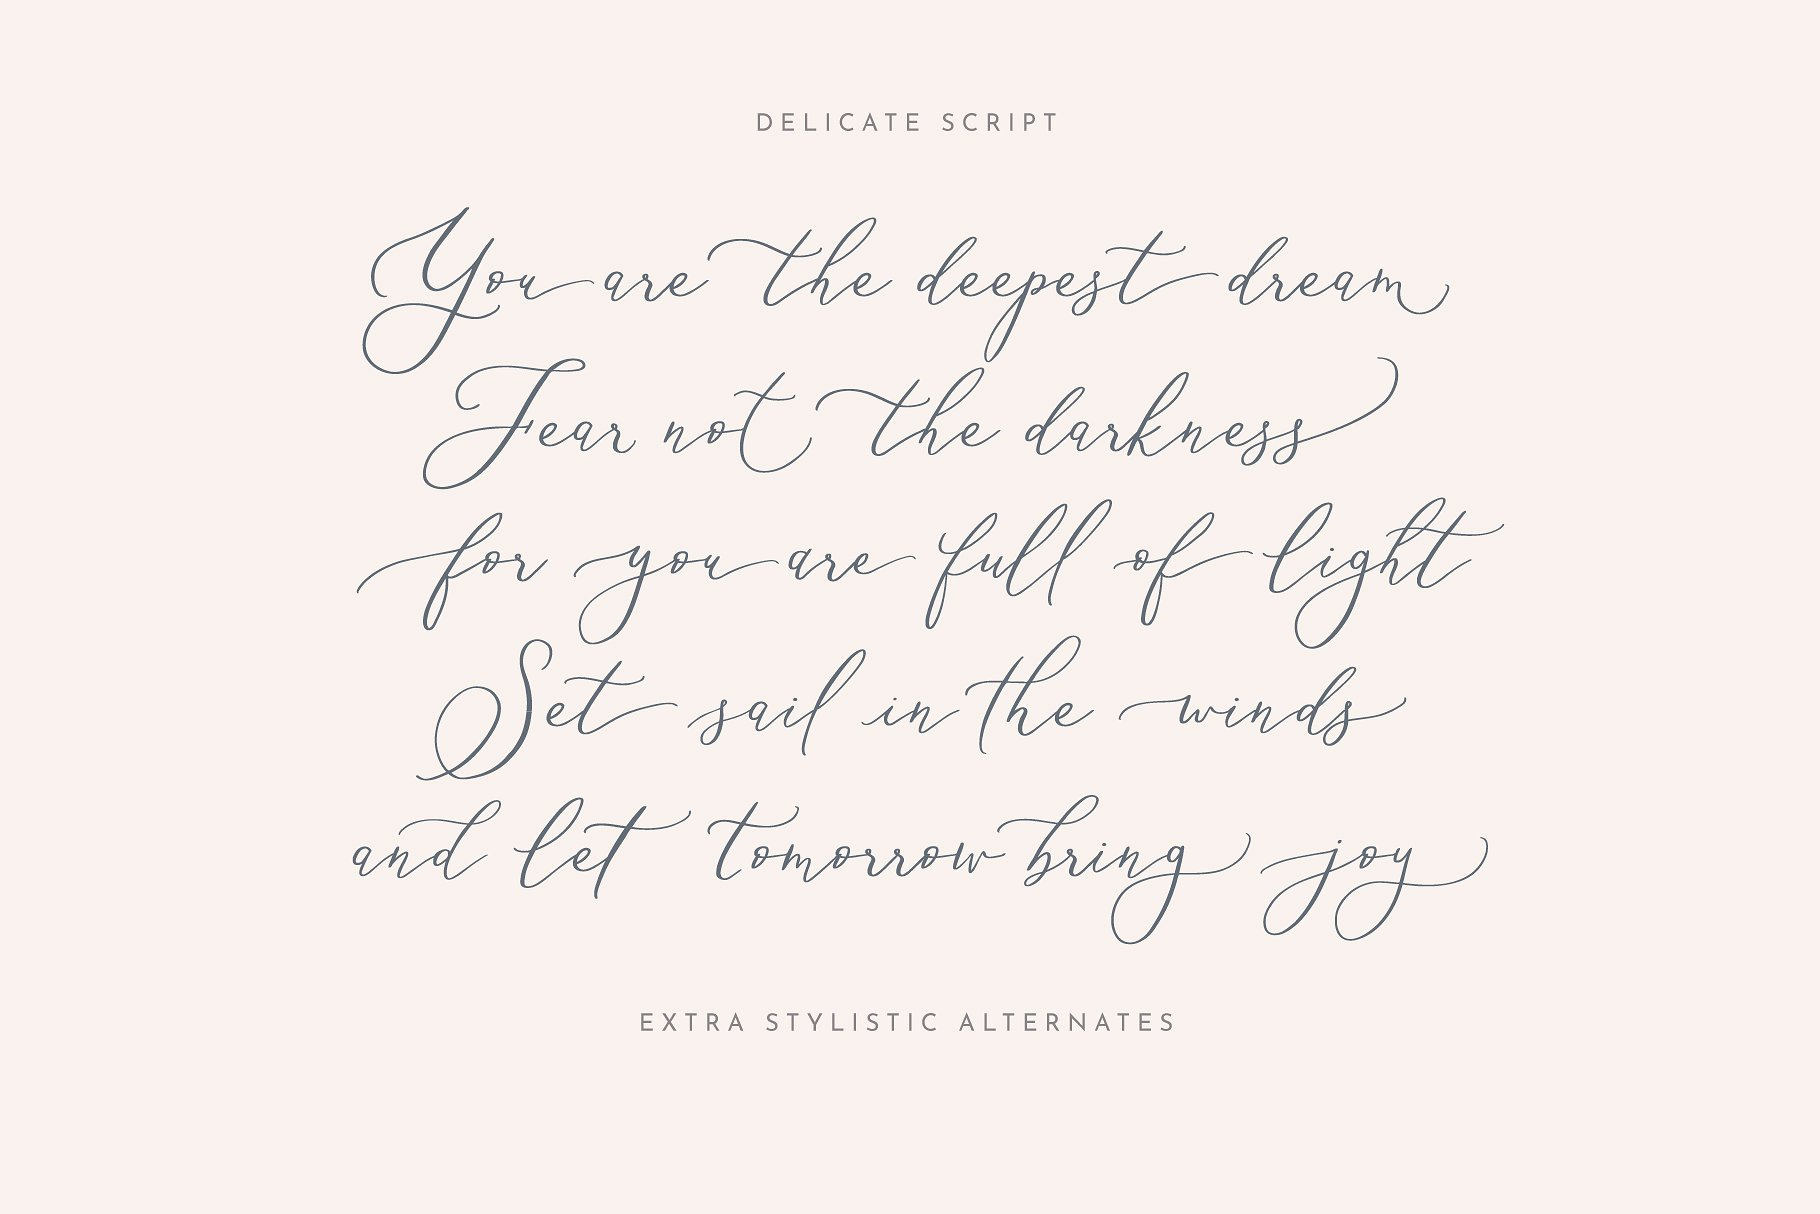 DELICATE SCRIPT
You are the deepest dream
Fear not the darkness
for you are full of light
Set sail in the winds
and let tomorrow bring joy
EXTRA STYLISTIC ALTERNATES